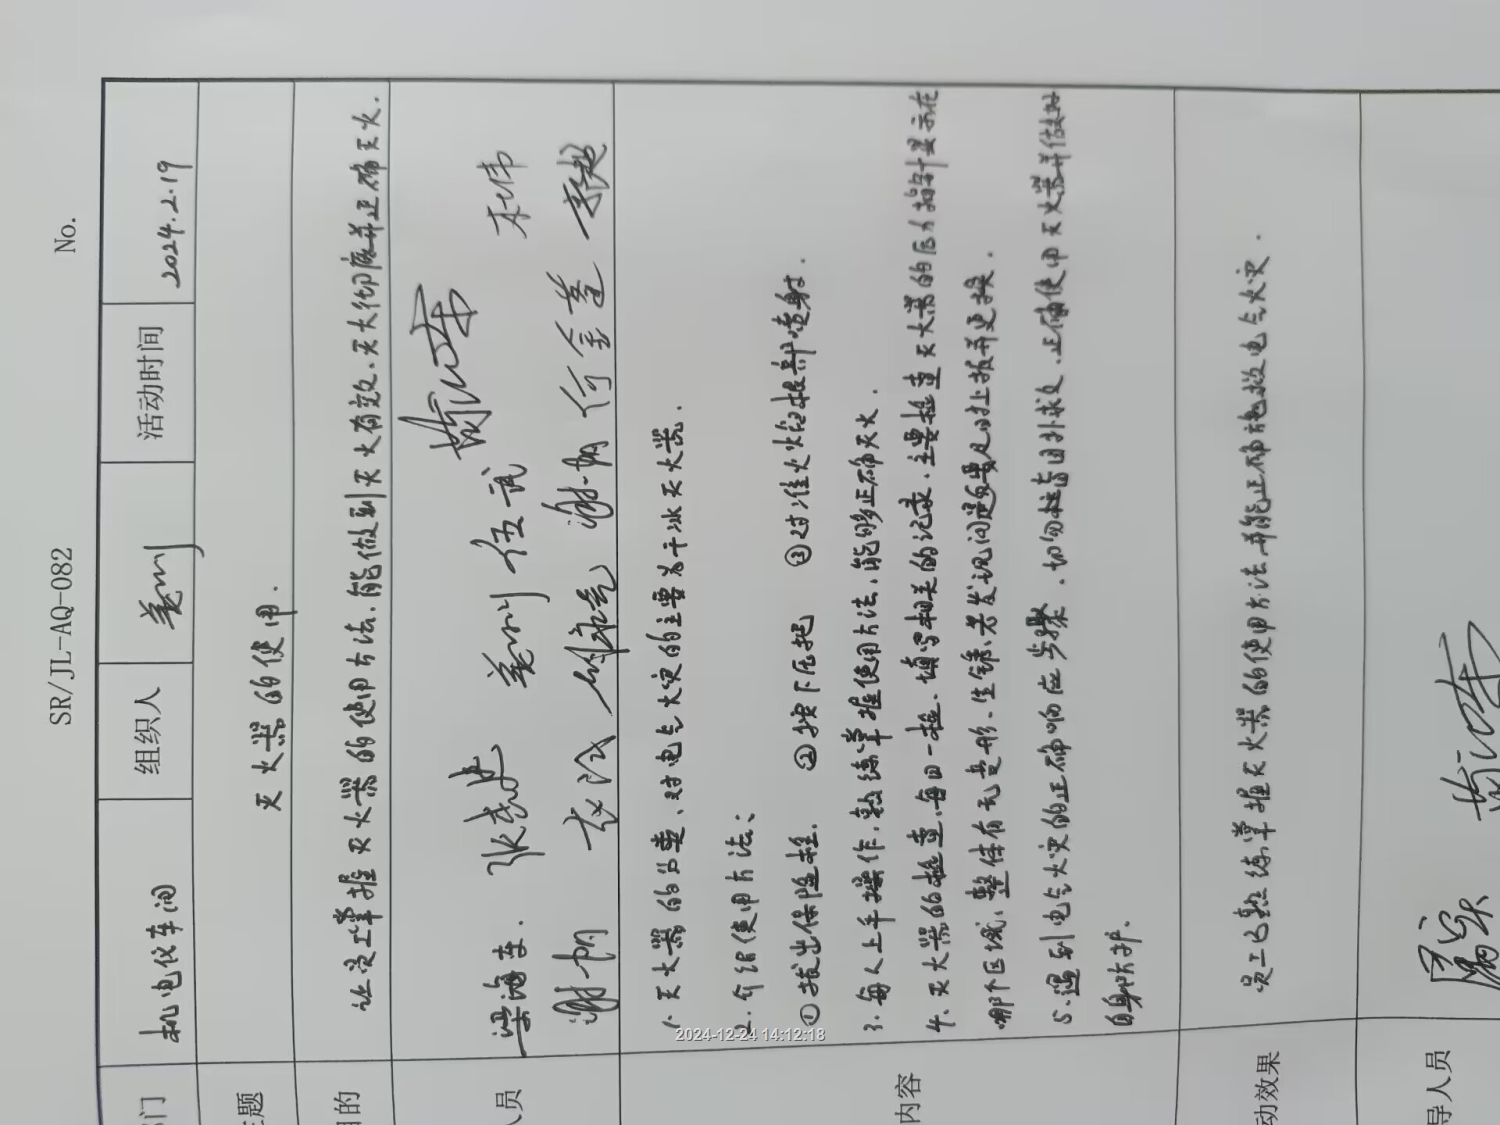 SR/JL-AQ-082 No.
部门 机电仪车间 组织人 姜川 活动时间 2024.2.19
主题 灭火器的使用.
目的 让员工掌握灭火器的使用方法.能做到灭火有效.灭火彻底并正确灭火.
人员 梁海车. 张志进 姜川 伍武 杜伟
谢帅 谢帅 李超
1. 灭火器的分类、对电气火灾的主要为干冰灭火器.
2. 介绍使用方法:
①拔出保险栓. ②按下压把 ③对准火焰根部喷射.
3. 每人上手操作.熟练掌握使用方法.能够正确灭火.
内容 4. 灭火器的检查.每日一检、填写相关的记录.主要检查灭火器的压力指针显示在
哪个区域、整体有无变形、生锈、若发现问题要及时上报并更换.
5. 遇到电气火灾的正确响应步骤.切勿盲目扑救.正确使用灭火器并做好
自身防护.
动效果 员工已熟练掌握灭火器的使用方法.并能正确施救电气火灾.
导人员
2024-12-24 14:12:18